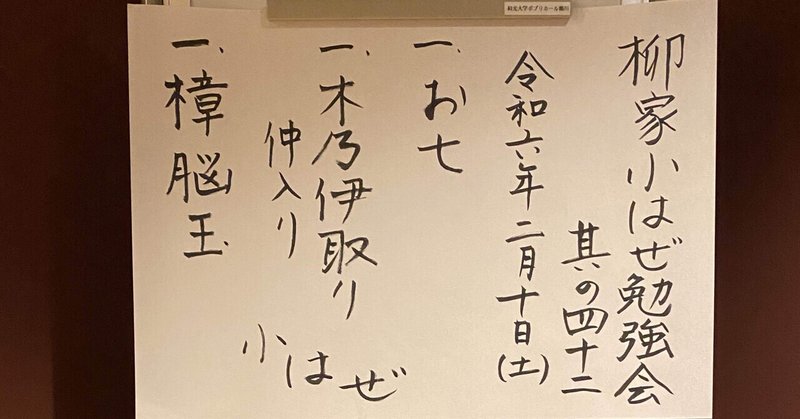 和光大学ポプリホール鶴川
柳家小はぜ勉強会
其の四十二
令和六年二月十日(土)
一、お七
一、木乃伊取り
仲入り
一、樟脳玉
小はぜ